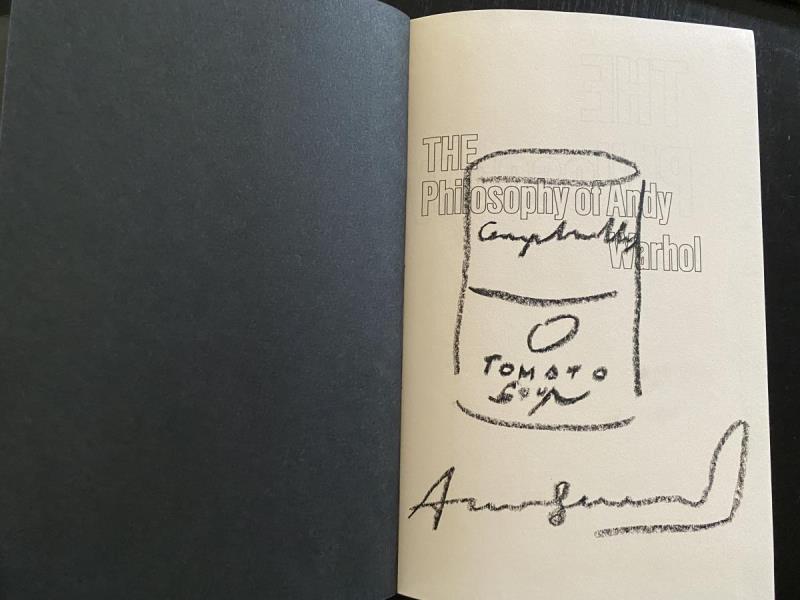 THE
Philosophy of Andy
Warhol
Campbell's
TOMATO
SOUP